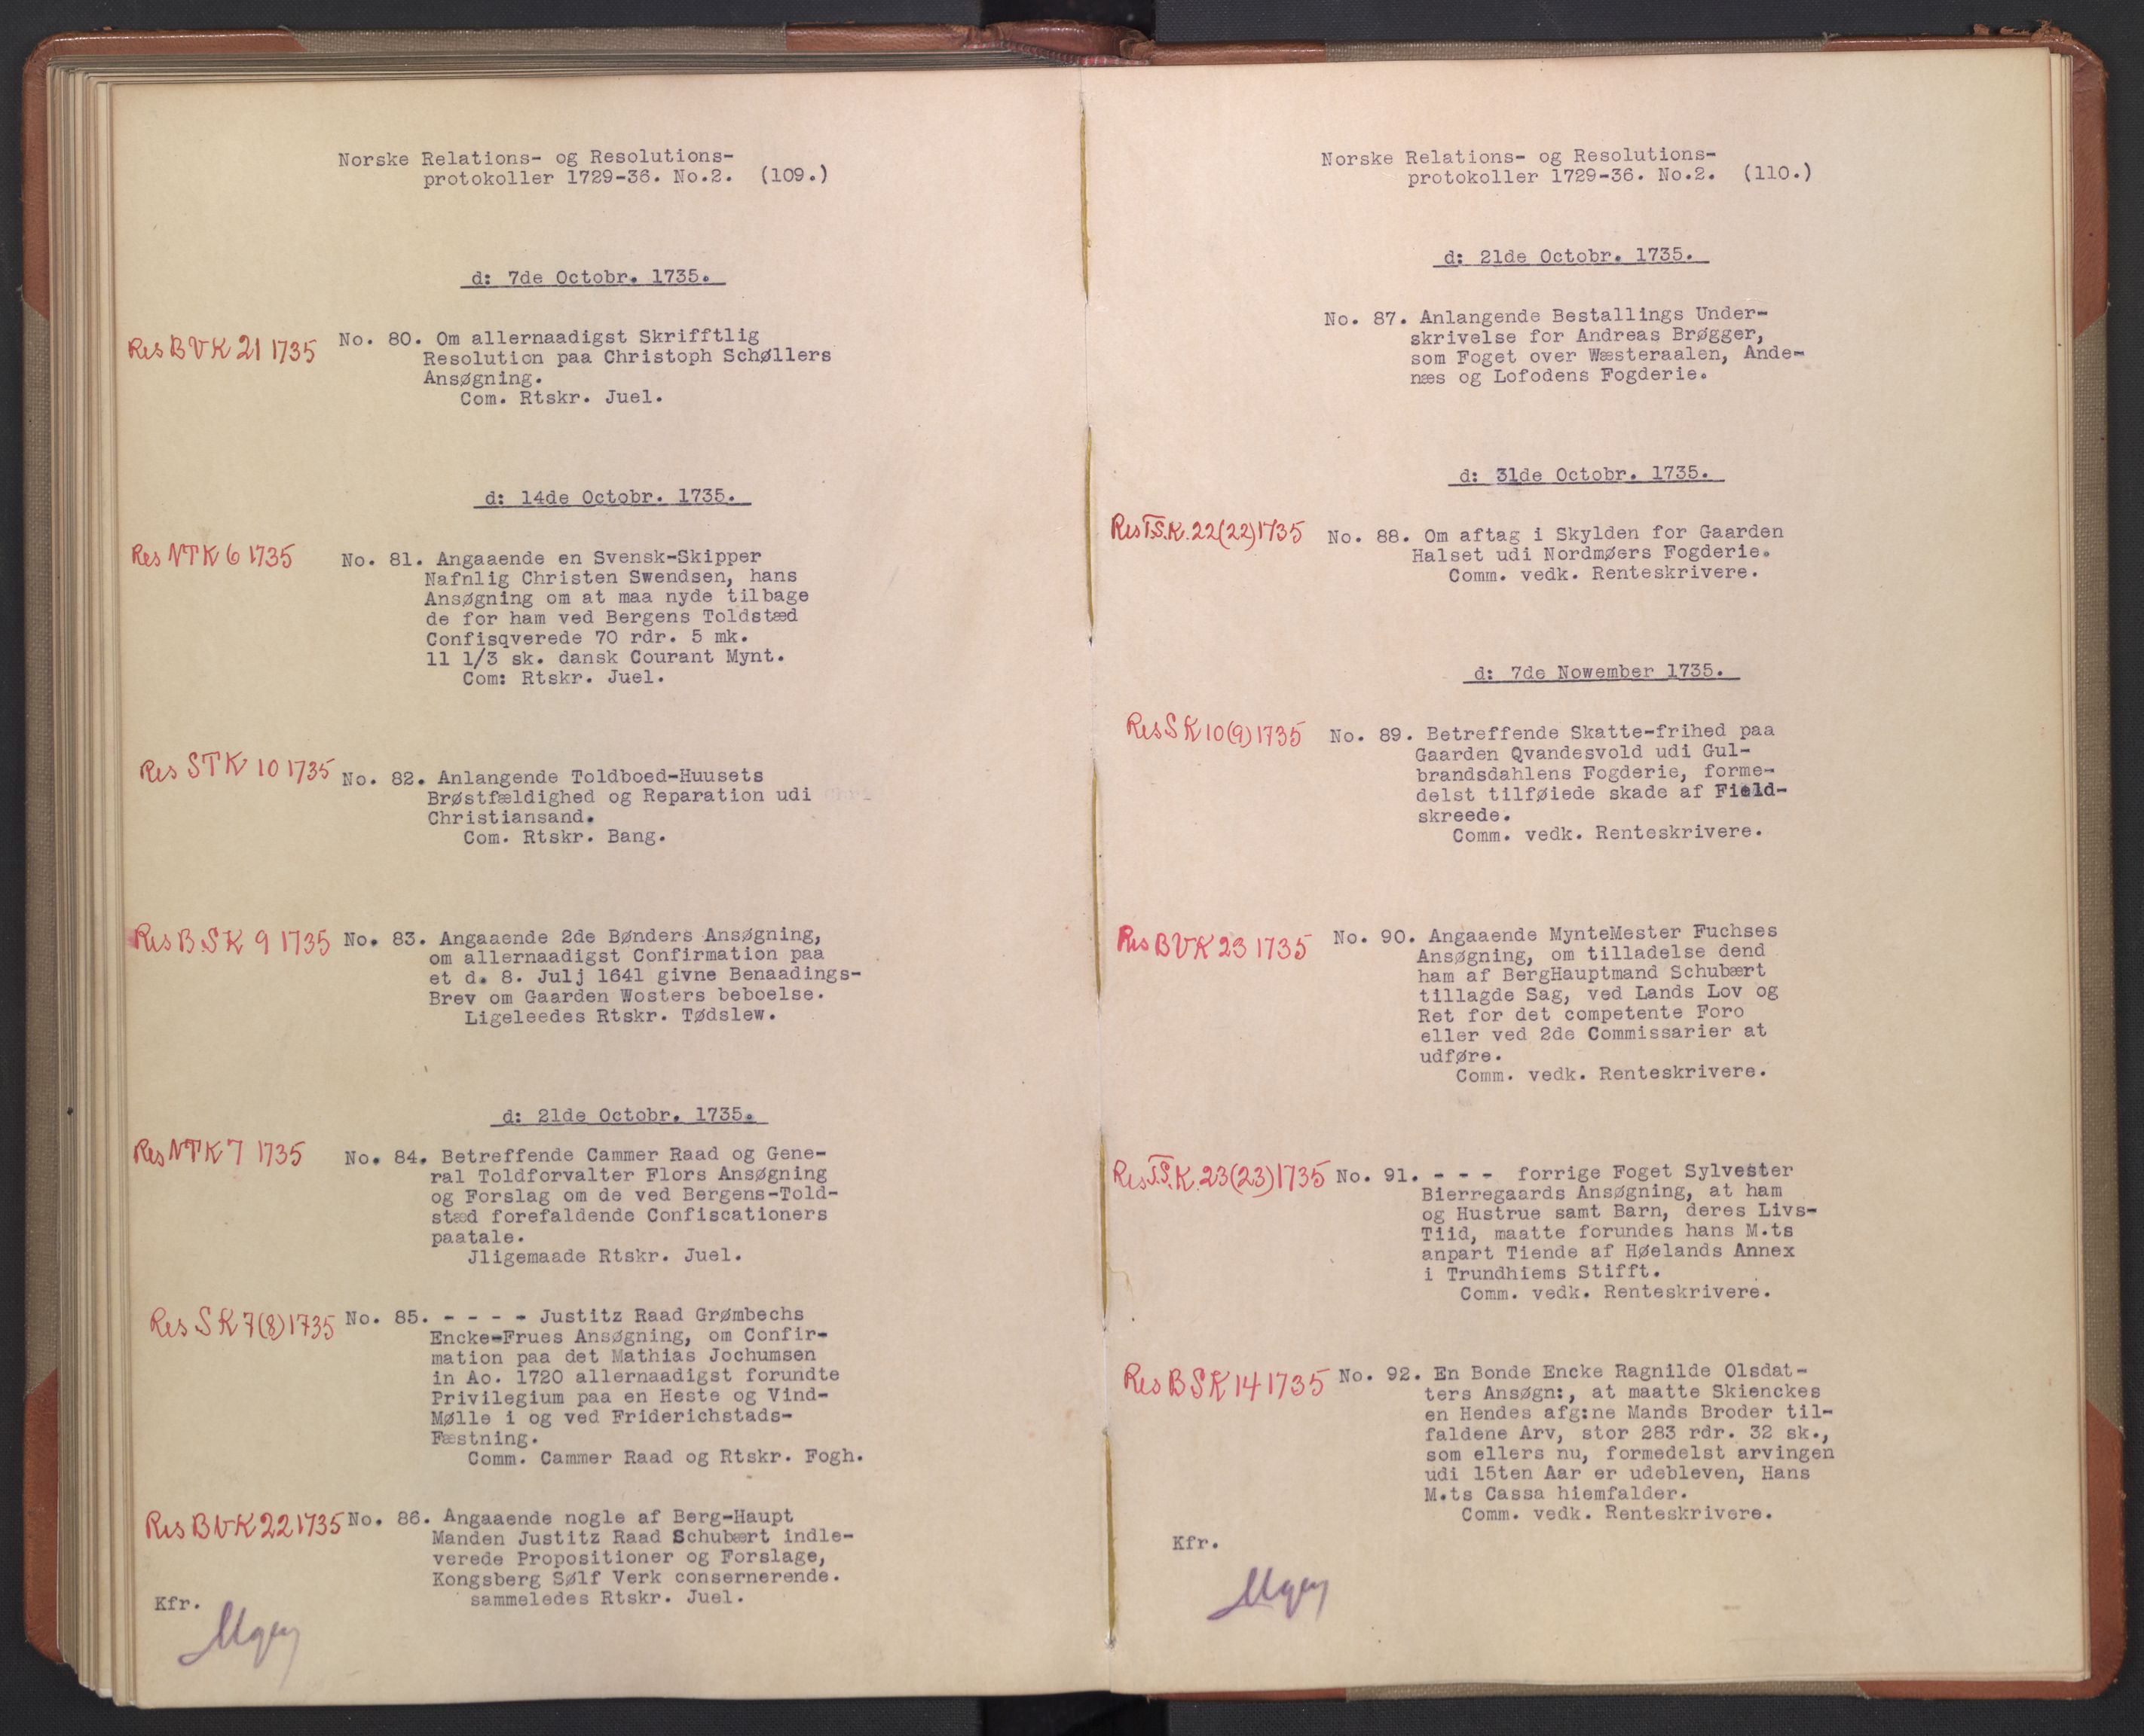 Norske Relations- og Resolutions-
protokoller 1729-36. No.2. (109.)
d: 7de Octobr. 1735.
Res BVK 21 1735
No. 80. Om allernaadigst Skrifftlig
Resolution paa Christoph Schøllers
Ansøgning.
Com. Rtskr. Juel.
d: 14de Octobr. 1735.
Res NTK 6 1735
No. 81. Angaaende en Svensk-Skipper
Nafnlig Christen Swendsen, hans
Ansøgning om at maa nyde tilbage
de for ham ved Bergens Toldstæd
Confisqverede 70 rdr. 5 mk.
11 1/3 sk. dansk Courant Mynt.
Com: Rtskr. Juel.
Res STK 10 1735
No. 82. Anlangende Toldboed-Huusets
Brøstfældighed og Reparation udi
Christiansand.
Com. Rtskr. Bang.
Res B.SK 9 1735
No. 83. Angaaende 2de Bønders Ansøgning,
om allernaadigst Confirmation paa
et d. 8. Julj 1641 givne Benaadings-
Brev om Gaarden Wosters beboelse.
Ligeleedes Rtskr. Tødslew.
d: 21de Octobr. 1735.
Res NTK 7 1735
No. 84. Betreffende Cammer Raad og Gene-
ral Toldforvalter Flors Ansøgning
og Forslag om de ved Bergens-Told-
stæd forefaldende Confiscationers
paatale.
Jligemaade Rtskr. Juel.
Res SK 7(8) 1735
No. 85. - - - - Justitz Raad Grømbechs
Encke-Frues Ansøgning, om Confir-
mation paa det Mathias Jochumsen
in Ao. 1720 allernaadigst forundte
Privilegium paa en Heste og Vind-
Mølle i og ved Friderichstads-
Fæstning.
Comm. Cammer Raad og Rtskr. Fogh.
Res BVK 22 1735
No. 86. Angaaende nogle af Berg-Haupt
Manden Justitz Raad Schubært indle-
verede Propositioner og Forslage,
Kongsberg Sølf Verk consernerende.
sammeledes Rtskr. Juel.
Kfr.
Norske Relations- og Resolutions-
protokoller 1729-36. No.2. (110.)
d: 21de Octobr. 1735.
No. 87. Anlangende Bestallings Under-
skrivelse for Andreas Brøgger,
som Foget over Wæsteraalen, Ande-
næs og Lofodens Fogderie.
d: 31de Octobr. 1735.
Res T.S.K. 22(22) 1735
No. 88. Om aftag i Skylden for Gaarden
Halset udi Nordmøers Fogderie.
Comm. vedk. Renteskrivere.
d: 7de Nowember 1735.
Res SK 10(9) 1735
No. 89. Betreffende Skatte-frihed paa
Gaarden Qvandesvold udi Gul-
brandsdahlens Fogderie, forme-
delst tilføiede skade af Field-
skreede.
Comm. vedk. Renteskrivere.
Res BVK 23 1735
No. 90. Angaaende MynteMester Fuchses
Ansøgning, om tilladelse dend
ham af BergHauptmand Schubært
tillagde Sag, ved Lands Lov og
Ret for det competente Foro
eller ved 2de Commissarier at
udføre.
Comm. vedk. Renteskrivere.
Res T.S.K. 23(23) 1735
No. 91. - - - forrige Foget Sylvester
Bierregaards Ansøgning, at ham
og Hustrue samt Barn, deres Livs-
Tiid, maatte forundes hans M.ts
anpart Tiende af Høelands Annex
i Trundhiems Stifft.
Comm. vedk. Renteskrivere.
Res BSK 14 1735
No. 92. En Bonde Encke Ragnilde Olsdat-
ters Ansøgn:, at maatte Skienckes
en Hendes afg:ne Mands Broder til-
faldene Arv, stor 283 rdr. 32 sk.,
som ellers nu, formedelst arvingen
udi 15ten Aar er udebleven, Hans
M.ts Cassa hiemfalder.
Comm. vedk. Renteskrivere.
Kfr.